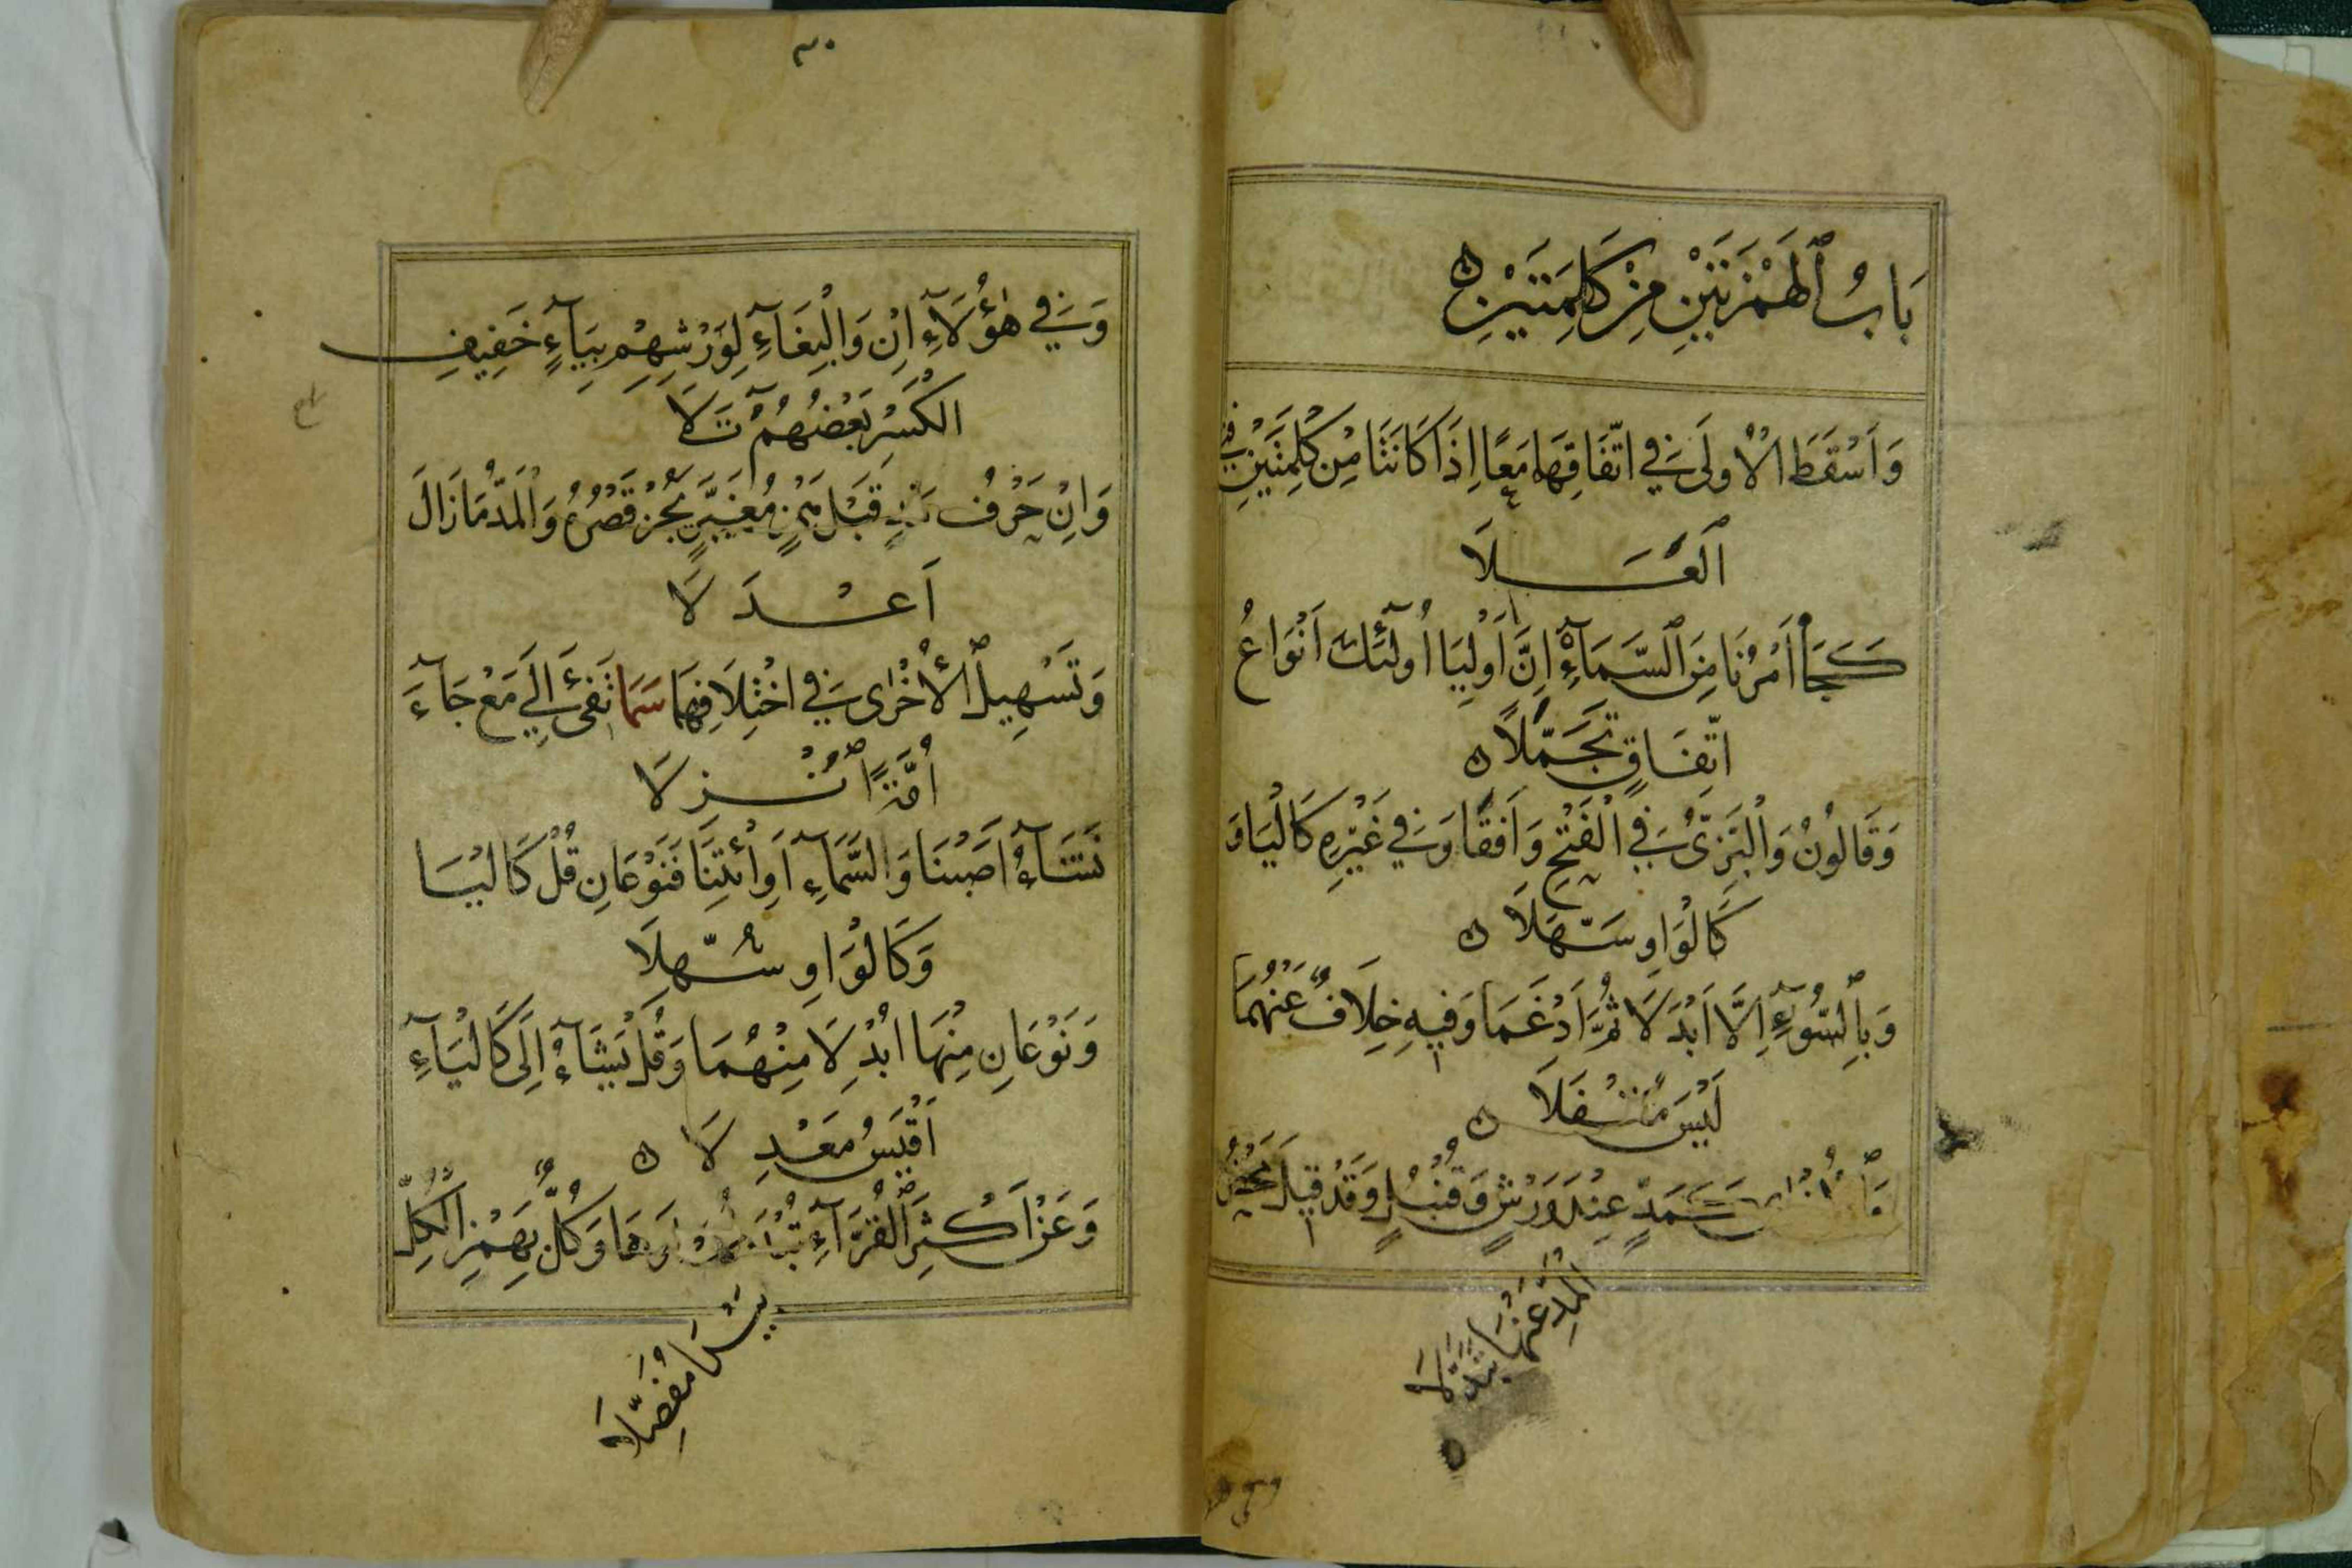 بَابُ ٱلْهَمْزَتَيْنِ مِنْ كَلِمَتَيْنِ
وَاَسْقَطَ الْاُولَى فِي اتِّفَاقِهِمَا مَعًا اِذَا كَانَتَا مِنْ كَلِمَتَيْنِ فَتَى
ٱلْعَلَا
كَجَا أَمْرُنَا مِنَ ٱلسَّمَآءِ اِنَّ اَوْلِيَا اُولَٓئِكَ اَنْوَاعُ
اتِّفَاقٍ تَجَمَّلَا
وَقَالُونُ وَالْبَزِّىُّ فِي الْفَتْحِ وَافَقَا وَفِي غَيْرِهِ كَالْيَا وَ
كَالْوَاوِ سَهَّلَا
وَبِالسُّوٓءِ اِلَّا اَبْدَلَا ثُمَّ اَدْغَمَا وَفِيهِ خِلَافٌ عَنْهُمَا
لَيْسَ مُقْفَلَا
كَمَدٍّ عِنْدَ وَرْشٍ وَقُنْبُلٍ وَقَدْ قِيلَ مَحْضُ
الْمَدِّ عَنْهَا تَبَدَّلَا
٣٠
وَفِي هٰؤُلَآءِ اِنْ وَالْبِغَآءِ لِوَرْشِهِمْ بِيَآءٍ خَفِيفِ
الْكَسْرِ بَعْضُهُمْ تَلَا
وَاِنْ حَرْفُ مَدٍّ قَبْلَ هَمْزٍ مُغَيَّرٍ يَجُزْ قَصْرُهُ وَالْمَدُّ مَا زَالَ
اَعْدَلَا
وَتَسْهِيلُ الْأُخْرٰى فِي اخْتِلَافِهِمَا سَمَا تَفِىءَ اِلَى مَعْ جَآءَ
اُمَّةً اُنْزِلَا
نَشَآءُ اَصَبْنَا وَالسَّمَآءِ اَوِ ائْتِنَا فَنَوْعَانِ قُلْ كَالْيَا
وَكَالْوَاوِ سُهِّلَا
وَنَوْعَانِ مِنْهَا اُبْدِلَا مِنْهُمَا وَقُلْ يَشَآءُ اِلَى كَالْيَآءِ
اَقْيَسُ مَعْدِلَا
وَعَنْ اَكْثَرِ الْقُرَّآءِ تُبْدَلُ وَاوُهَا وَكُلٌّ بِهَمْزِ الْكُلِّ
يَبْدَا مُفَصِّلَا